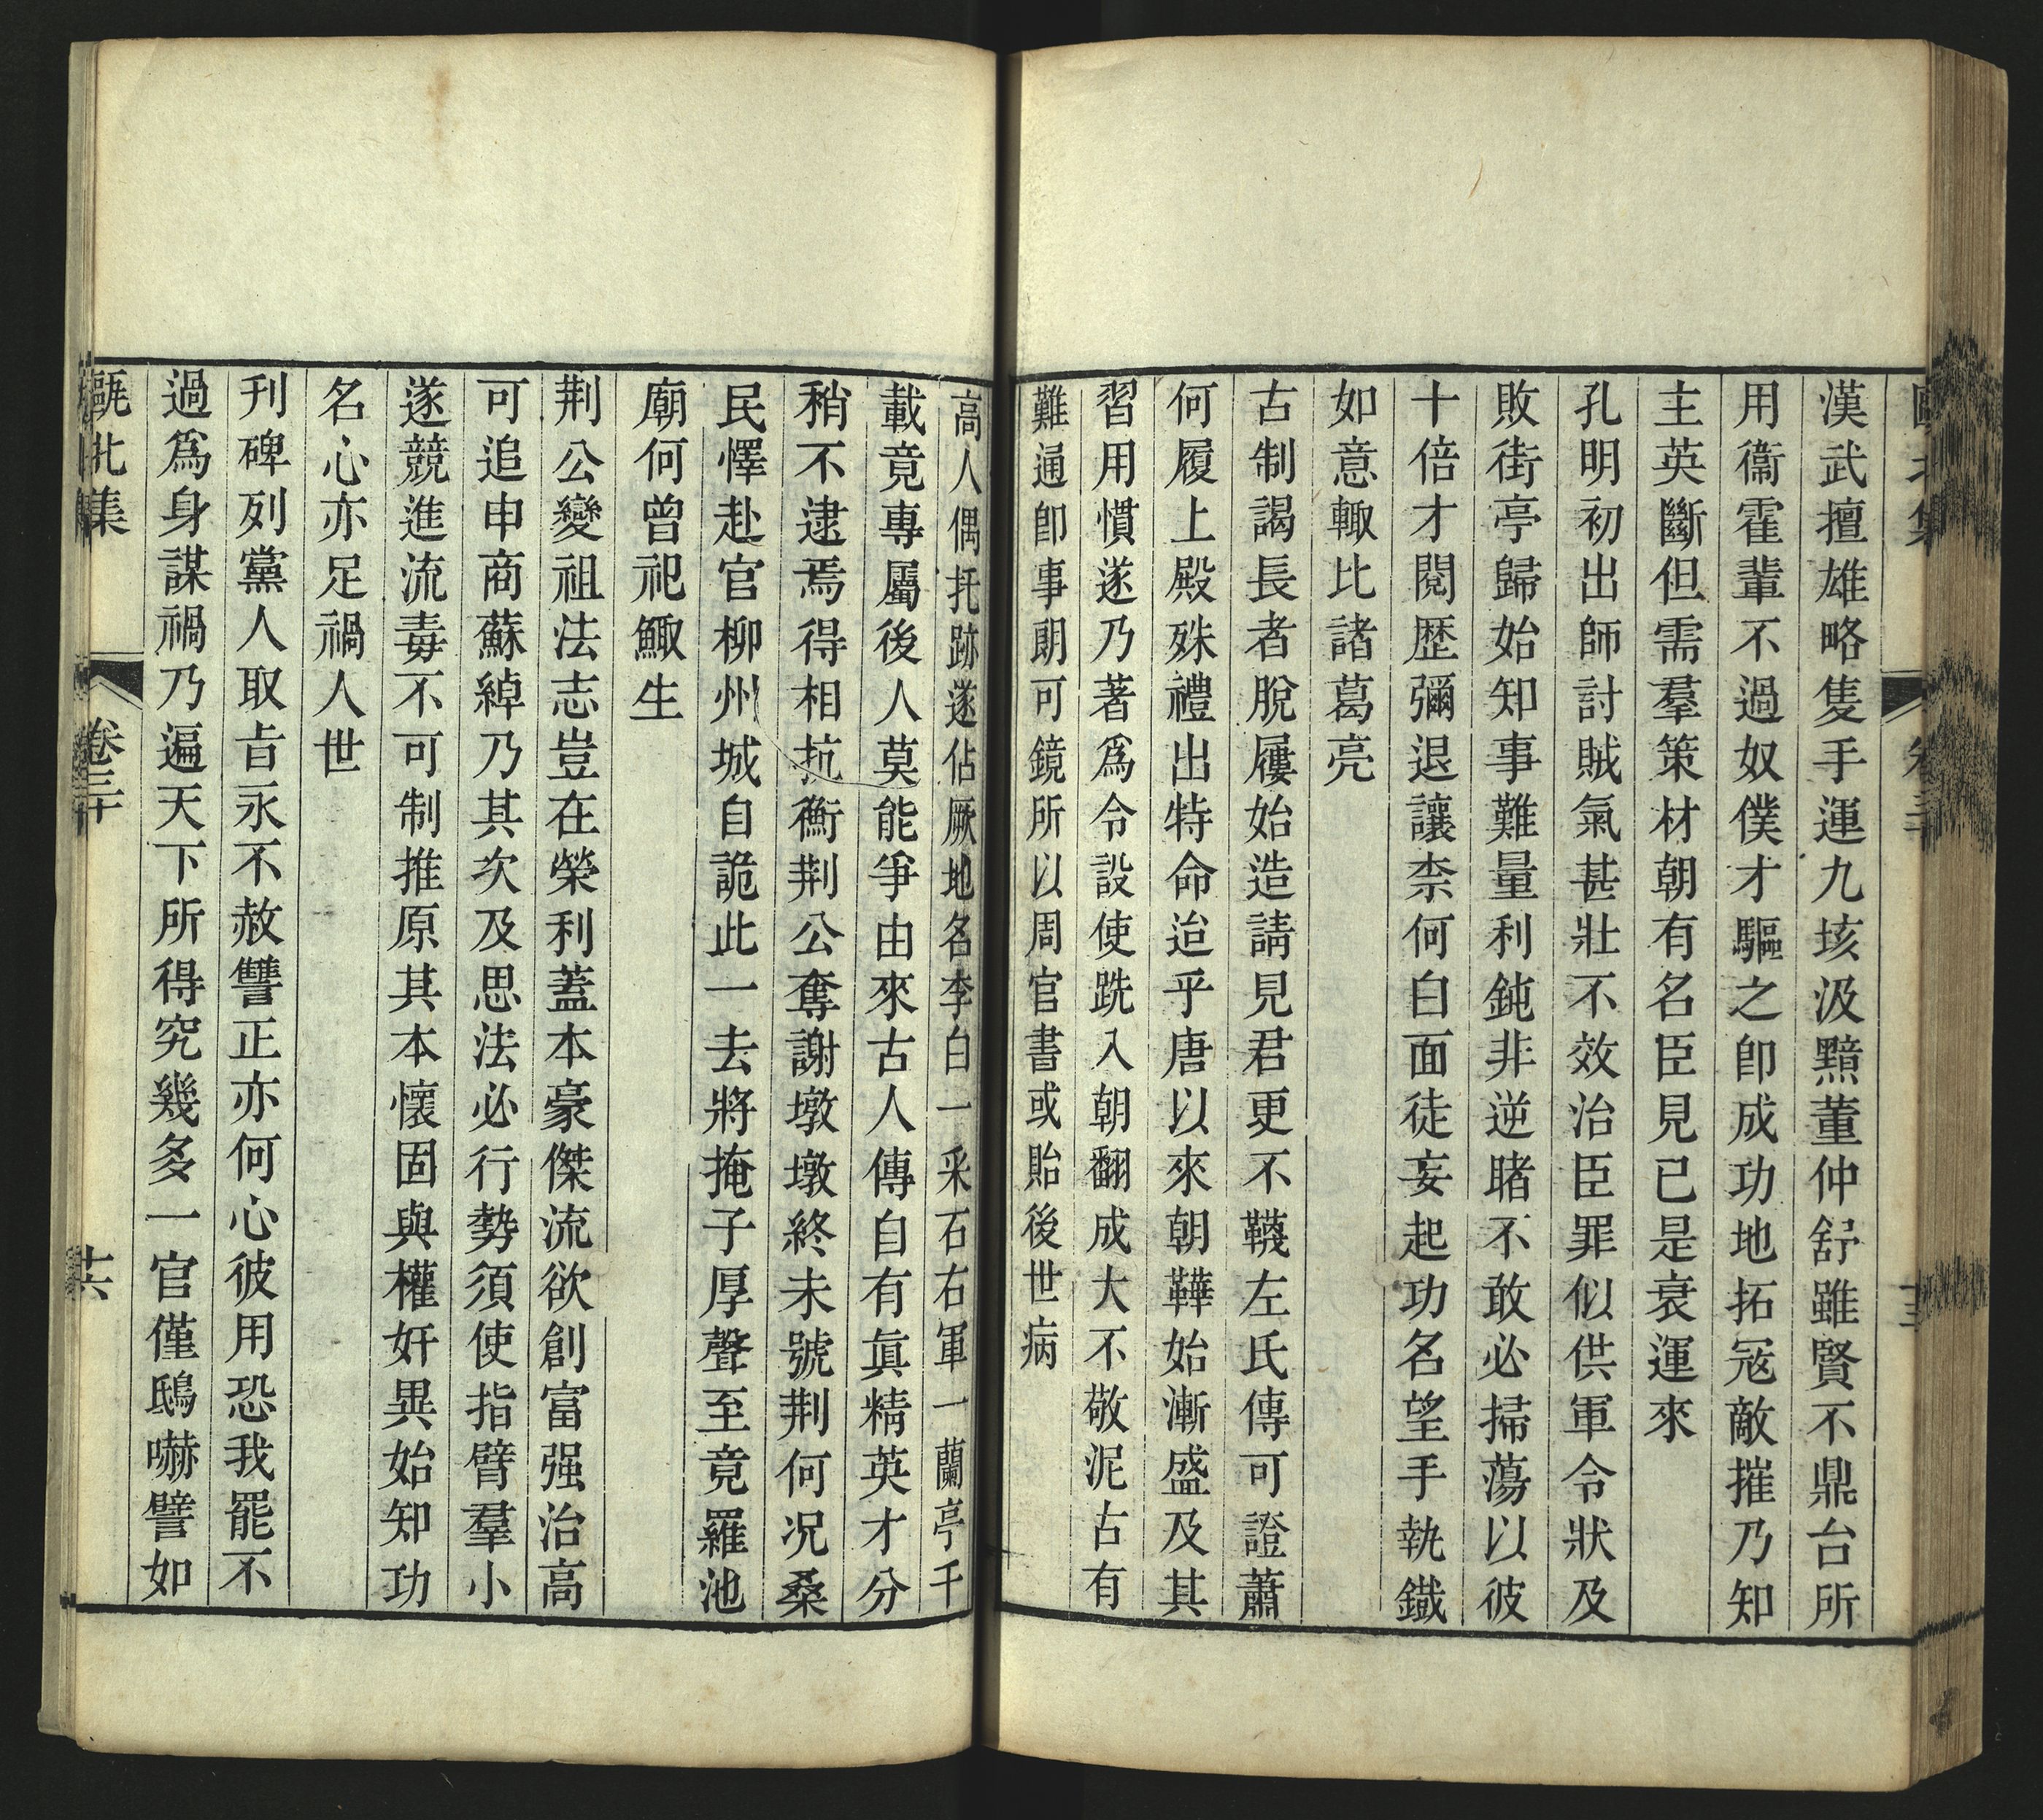 漢武擅雄略隻手運九垓汲黯董仲舒雖賢不鼎台所
用衞霍輩不過奴僕才驅之卽成功地拓冦敵摧乃知
主英斷但需羣策材朝有名臣見已是衰運來
孔明初出師討賊氣甚壯不效治臣罪似供軍令狀及
敗街亭歸始知事難量利鈍非逆睹不敢必掃蕩以彼
十倍才閱歷彌退讓柰何白面徒妄起功名望手執鐵
如意輙比諸葛亮
古制謁長者脫屨始造請見君更不韈左氏傳可證蕭
何履上殿殊禮出特命迨乎唐以來朝鞾始漸盛及其
習用慣遂乃著爲令設使跣入朝翻成大不敬泥古有
難通卽事朗可鏡所以周官書或貽後世病
高人偶托跡遂佔厥地名李白一采石右軍一蘭亭千
載竟專屬後人莫能爭由來古人傳自有眞精英才分
稍不逮焉得相抗衡荆公奪謝墩墩終未號荆何况桑
民懌赴官柳州城自詭此一去將掩子厚聲至竟羅池
廟何曾祀鯫生
荆公變祖法志豈在榮利蓋本豪傑流欲創富强治高
可追申商蘇綽乃其次及思法必行勢須使指臂羣小
遂競進流毒不可制推原其本懷固與權奸異始知功
名心亦足禍人世
刋碑列黨人取旨永不赦讐正亦何心彼用恐我罷不
過爲身謀禍乃遍天下所得究幾多一官僅鴟嚇譬如
甌北集
卷三十
十六